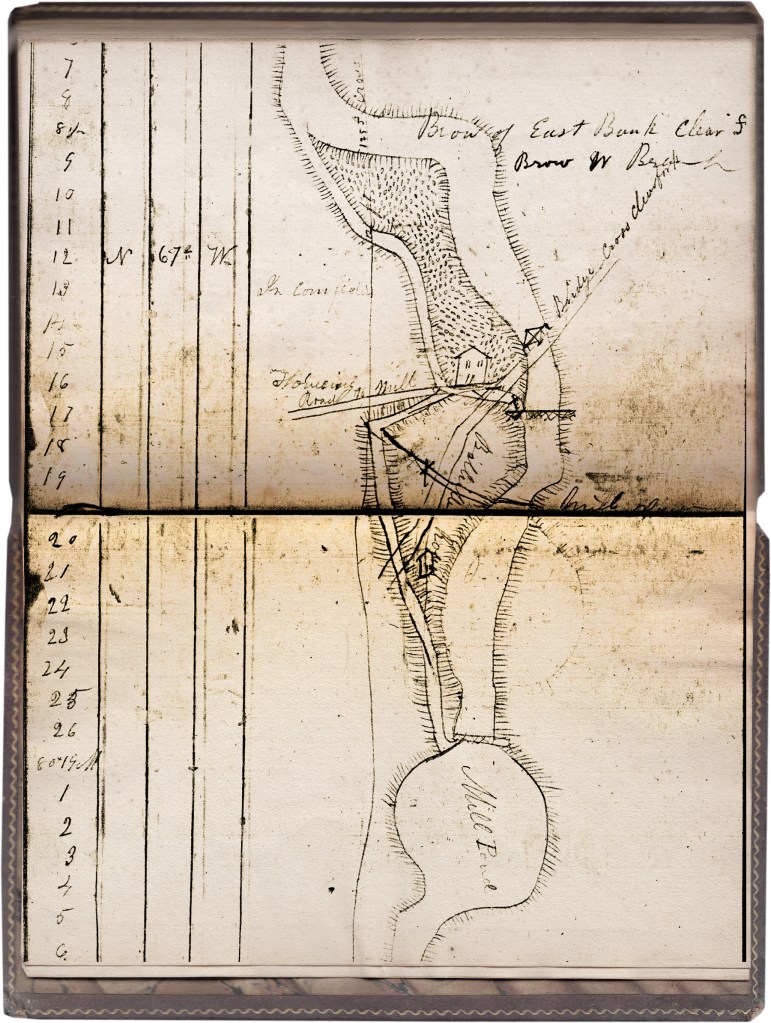 7
8
8½
9
10
11
12 N 67° W
13
14
15
16
17
18
19
20
21
22
23
24
25
26
1
2
3
4
5
6
Brow of East Bank Clear f
Brow W
Bridge Cross Clear fork
In cornfield
Road to Mill
Mill
Mill Pond